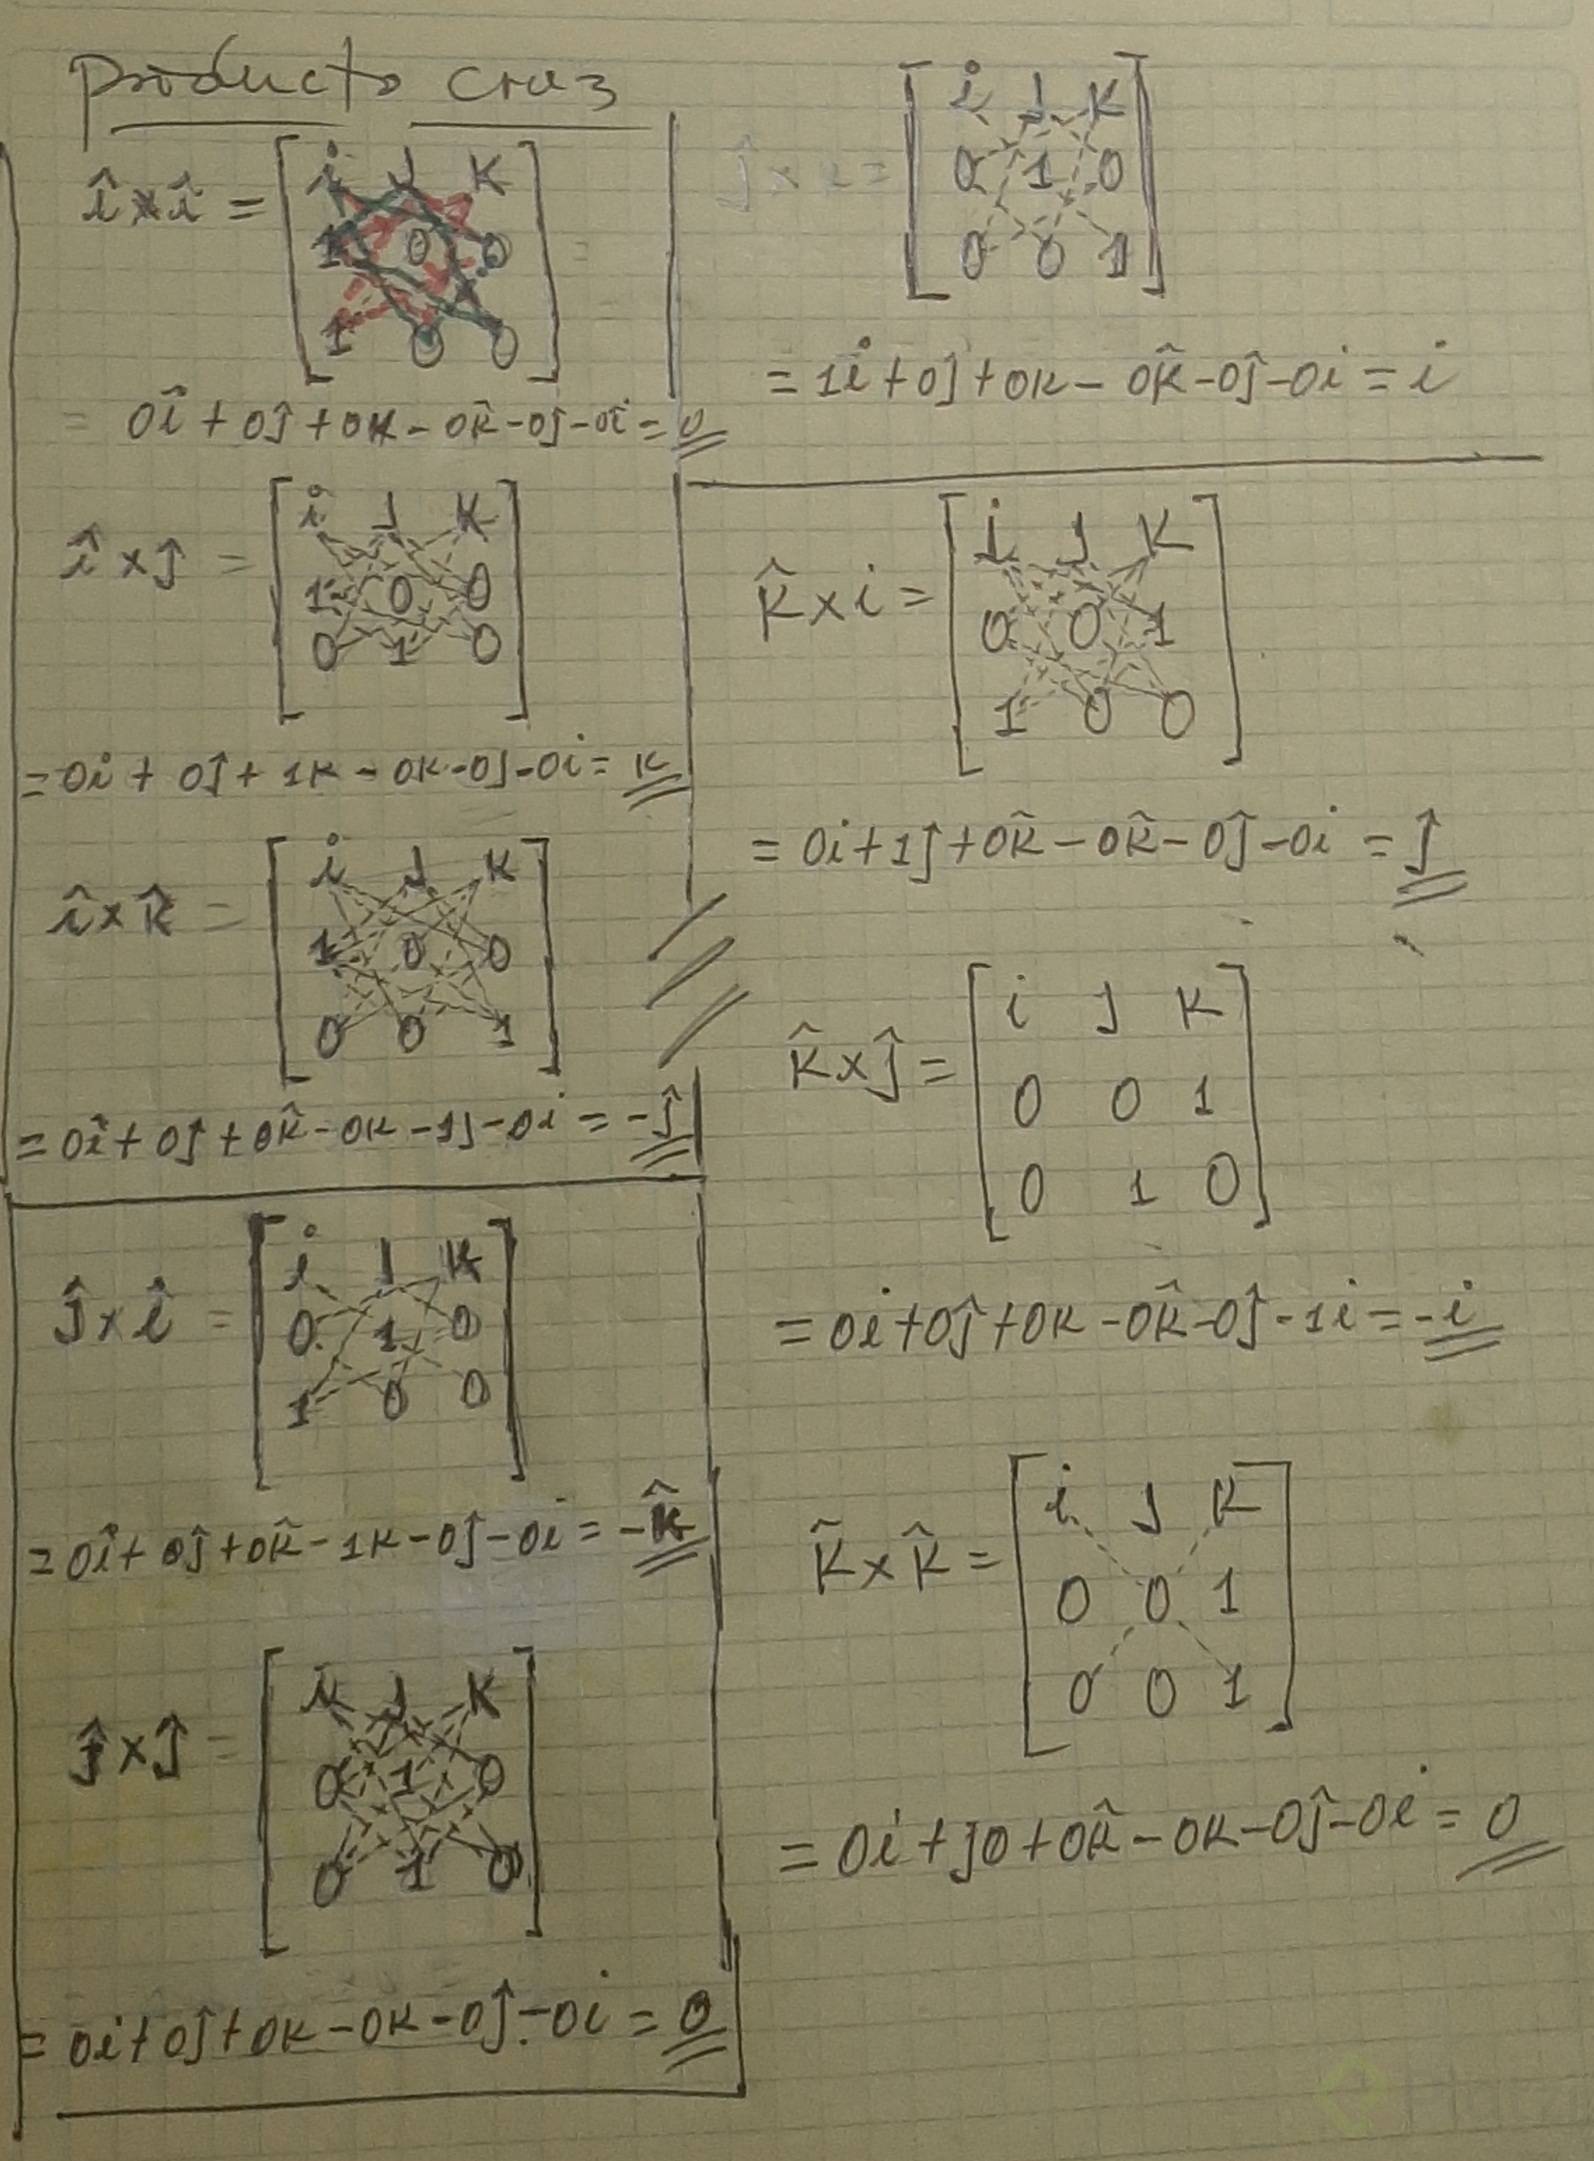 Producto cruz
î × î = [ i J K
1 0 0
1 0 0 ] =
= 0î + 0ĵ + 0K - 0K̂ - 0ĵ - 0î = 0
î × ĵ = [ i J K
1 0 0
0 1 0 ]
= 0i + 0ĵ + 1K - 0K - 0ĵ - 0i = K
î × K̂ = [ i J K
1 0 0
0 0 1 ]
= 0î + 0ĵ + 0K̂ - 0K - 1ĵ - 0i = -ĵ
ĵ × î = [ i J K
0 1 0
1 0 0 ]
= 0î + 0ĵ + 0K̂ - 1K - 0ĵ - 0i = -K̂
ĵ × ĵ = [ i J K
0 1 0
0 1 0 ]
= 0i + 0ĵ + 0K - 0K - 0ĵ - 0i = 0
ĵ × K = [ i J K
0 1 0
0 0 1 ]
= 1i + 0ĵ + 0K - 0K̂ - 0ĵ - 0i = i
K̂ × i = [ i J K
0 0 1
1 0 0 ]
= 0i + 1ĵ + 0K̂ - 0K̂ - 0ĵ - 0i = ĵ
K̂ × ĵ = [ i J K
0 0 1
0 1 0 ]
= 0i + 0ĵ + 0K - 0K̂ - 0ĵ - 1i = -i
K̂ × K̂ = [ i J K
0 0 1
0 0 1 ]
= 0i + J0 + 0K̂ - 0K - 0ĵ - 0i = 0